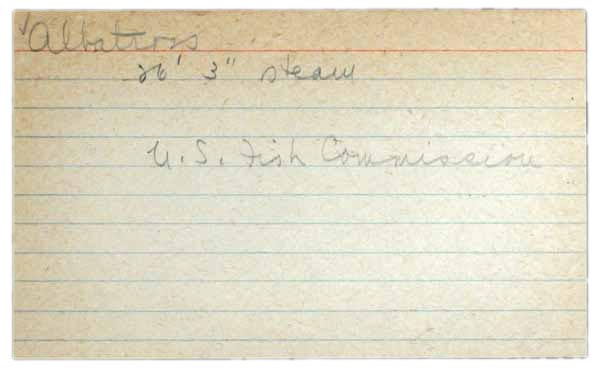 Albatross
26' 3" steam
U.S. Fish Commission